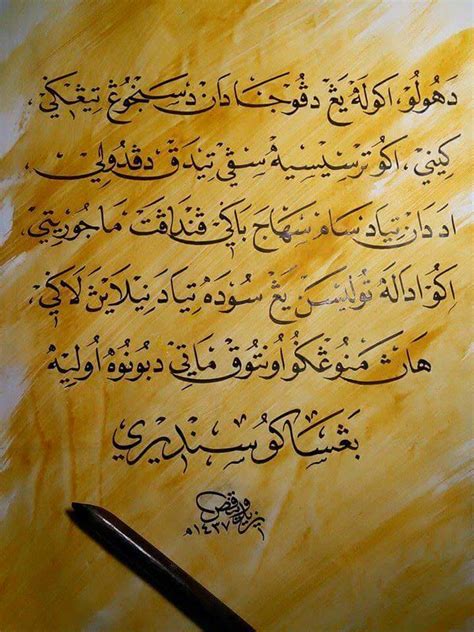 دهولو، اكوله يڠ دڤوجا دان دسنجوڠ تيڠڬي،
كيني، اكو ترسيسيه سڤي تيدق دڤدولي،
اد دان تياد سام سهاج باڬي ڤنداڤت ماجوريتي،
اكو اداله توليسن يڠ سوده تياد نيلاين لاڬي،
هاڽ منوڠڬو اونتوق ماتي دبونوه اوليه
بڠساكو سنديري
١٤٣٧